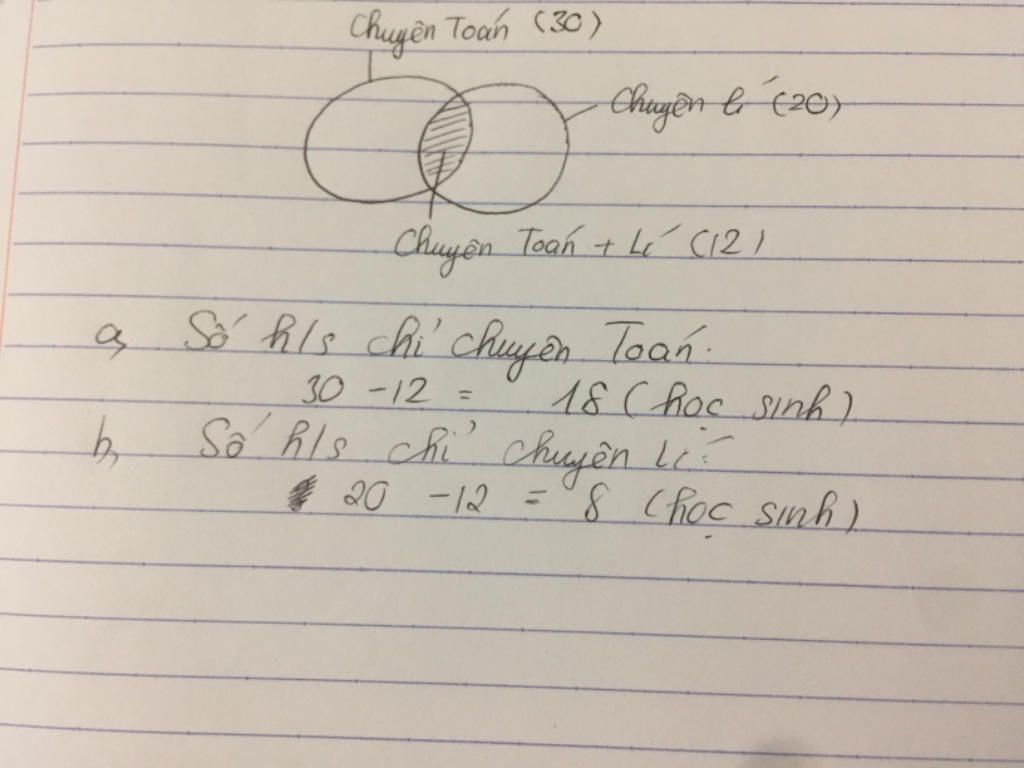 Chuyên Toán (30)
Chuyên Lí (20)
Chuyên Toán + Lí (12)
a, Số h/s chỉ chuyên Toán.
30 - 12 = 18 (học sinh)
b, Số h/s chỉ chuyên Lí:
20 - 12 = 8 (học sinh)